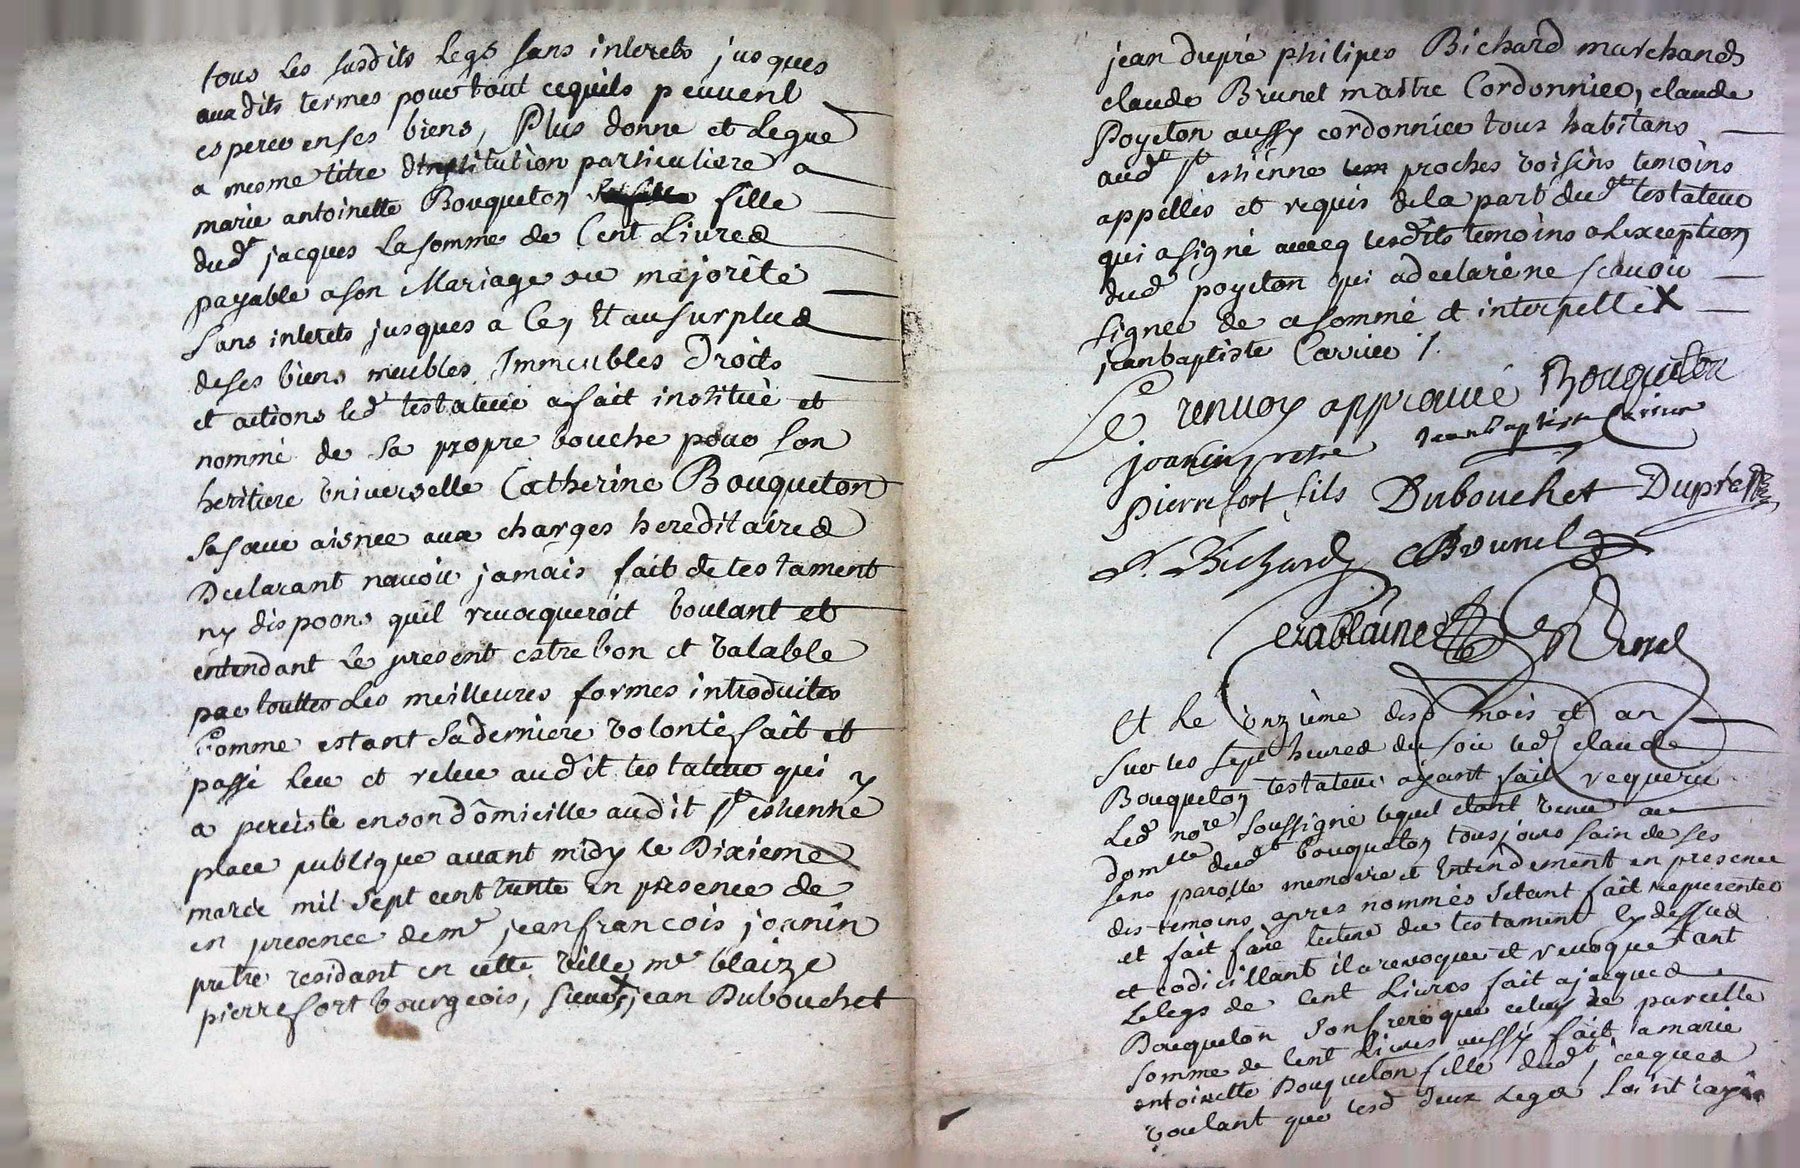 tous les susdits legs sans interets jusques
auxdits termes pour tout cequils peuvent
esperer en ses biens, Plus donne et legue
a mesme titre dinstitution particuliere a
marie antoinette Bouqueton fille
dud^t jacques la somme de Cent Livres
payable a son Mariage ou majorité
Sans interets jusques a Ce, Et au surplus
de ses biens meubles Immeubles Droits
et actions led^t testateur a fait institué et
nommé de sa propre bouche pour son
heritiere Universelle Catherine Bouqueton
sa sœur aisnee aux charges hereditaires
Declarant navoir jamais fait de testament
ny dispoons quil revocqueroit voulant et
entendant le present estre bon et valable
par touttes les meilleures formes introduites
Comme estant sa derniere volonté fait et
passé leu et releu audit testateur qui y
a percisté en son domicille audit S^t estienne
place publique avant midy le Dixieme
mars mil sept cent trente en presence de
en presence de m^r jean francois joanin
pretre residant en cette ville m^e blaize
pierrefort bourgeois, sieurs jean Dubouchet
jean dupré philipes Bichard marchands
claude Brunet maitre Cordonnier, claude
Poyeton aussy cordonnier tous habitans
aud^t S^t estienne proches voisins temoins
appellés et requis de la part dud^t testateur
qui a signé avecq lesdits temoins a lexception
dud^t poyeton qui a declaré ne scavoir
signer de ce sommé et interpellé X
jean baptiste Carrier /.
Le renvoy approuvé Bouqueton
joanin pretre Jean baptiste Carrier
pierrefort fils Dubouchet Dupré
P. Bichard CBrunet
Et le onzieme desd mois et an
sur les sept heures du soir led^t claude
Bouqueton testateur ayant fait requerir
Led^t no^re soussigné lequel etant venu au
dom^lle dud^t bouqueton tousjours sain de ses
sens parolle memoire et Entendement en presence
des temoins apres nommés setant fait representer
et fait faire lecture du testament cy dessus
et codicillant il a revoque et revoque tant
Le legs de Cent Livres fait a jacques
Bouqueton son frere que celuy de pareille
somme de Cent Livres aussy fait a marie
antoinette Bouqueton fille dud^t jacques
voulant que lesd deux Legs soint